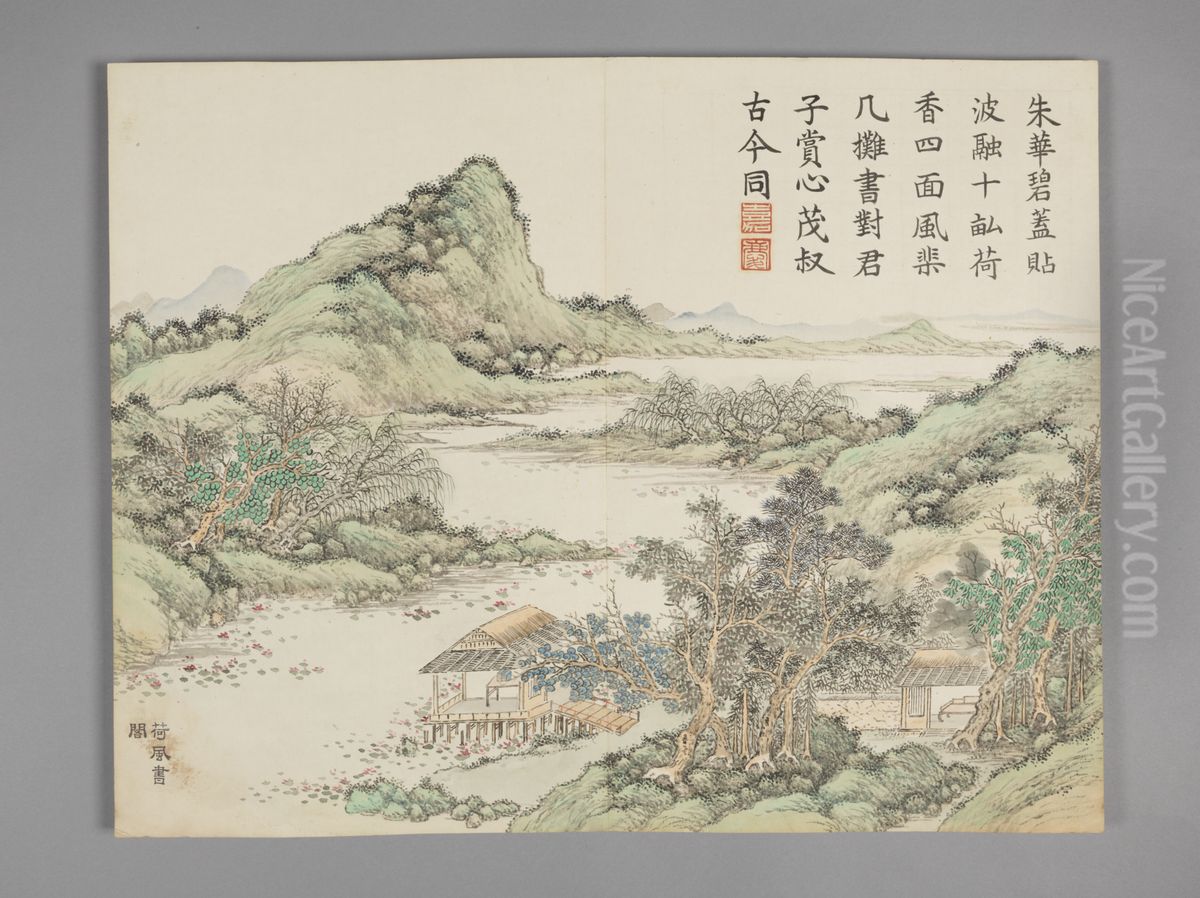 朱華碧蓋貼
波融十畝荷
香四面風棐
几攤書對君
子賞心茂叔
古今同
荷風書
閣
NiceArtGallery.com